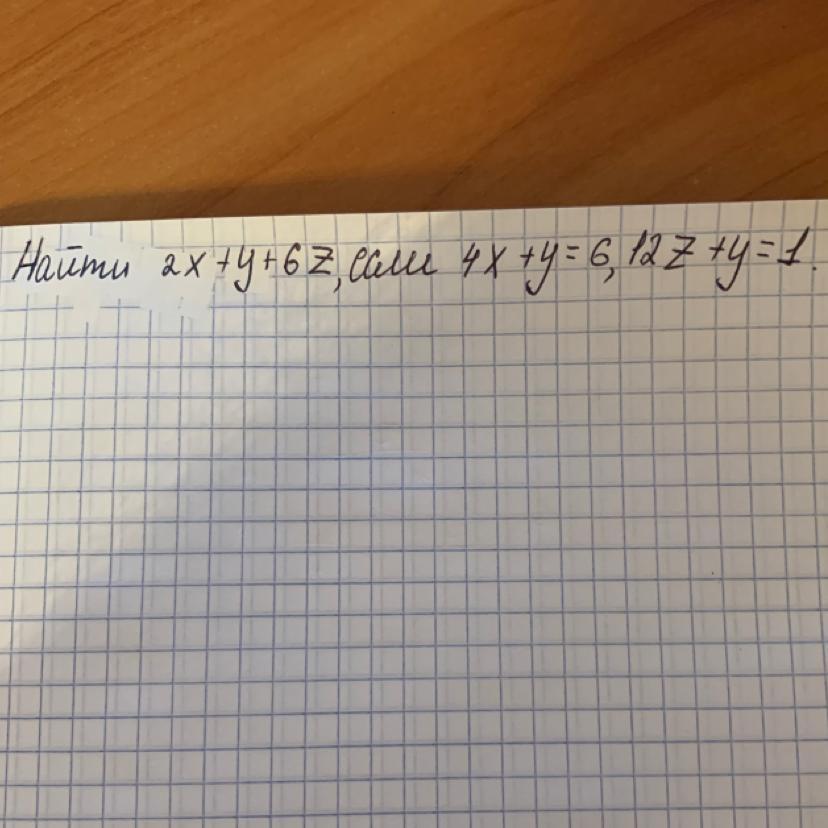 Найти 2x+y+6z, если 4x+y=6, 12z+y=1.